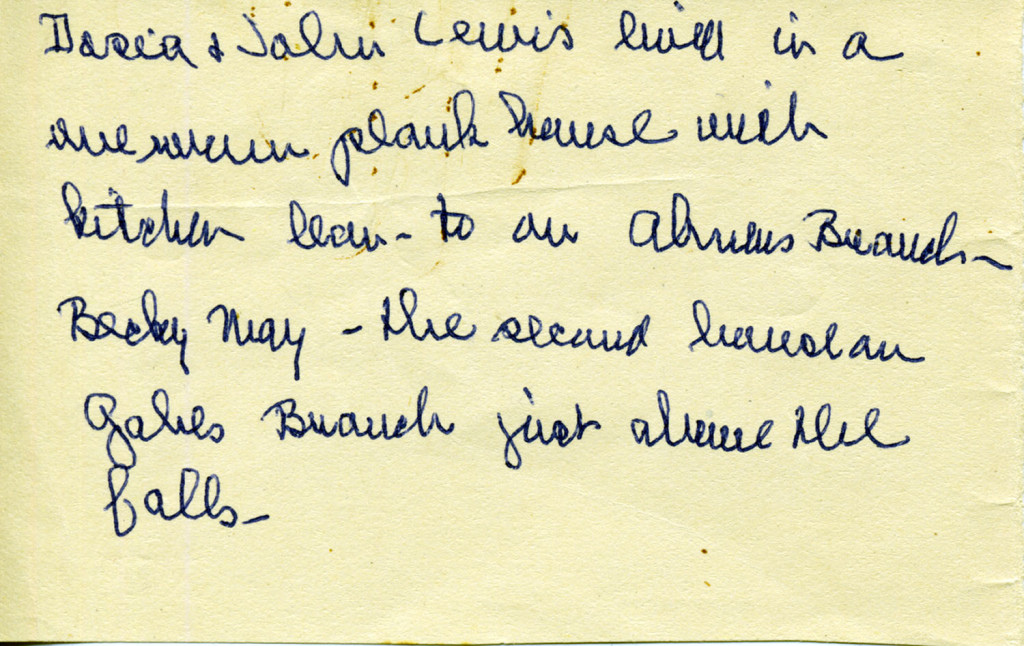 Docia & John Lewis lived in a
one room plank house with
kitchen lean-to on Abners Branch-
Becky May - the second house on
Gabes Branch just above the
falls-